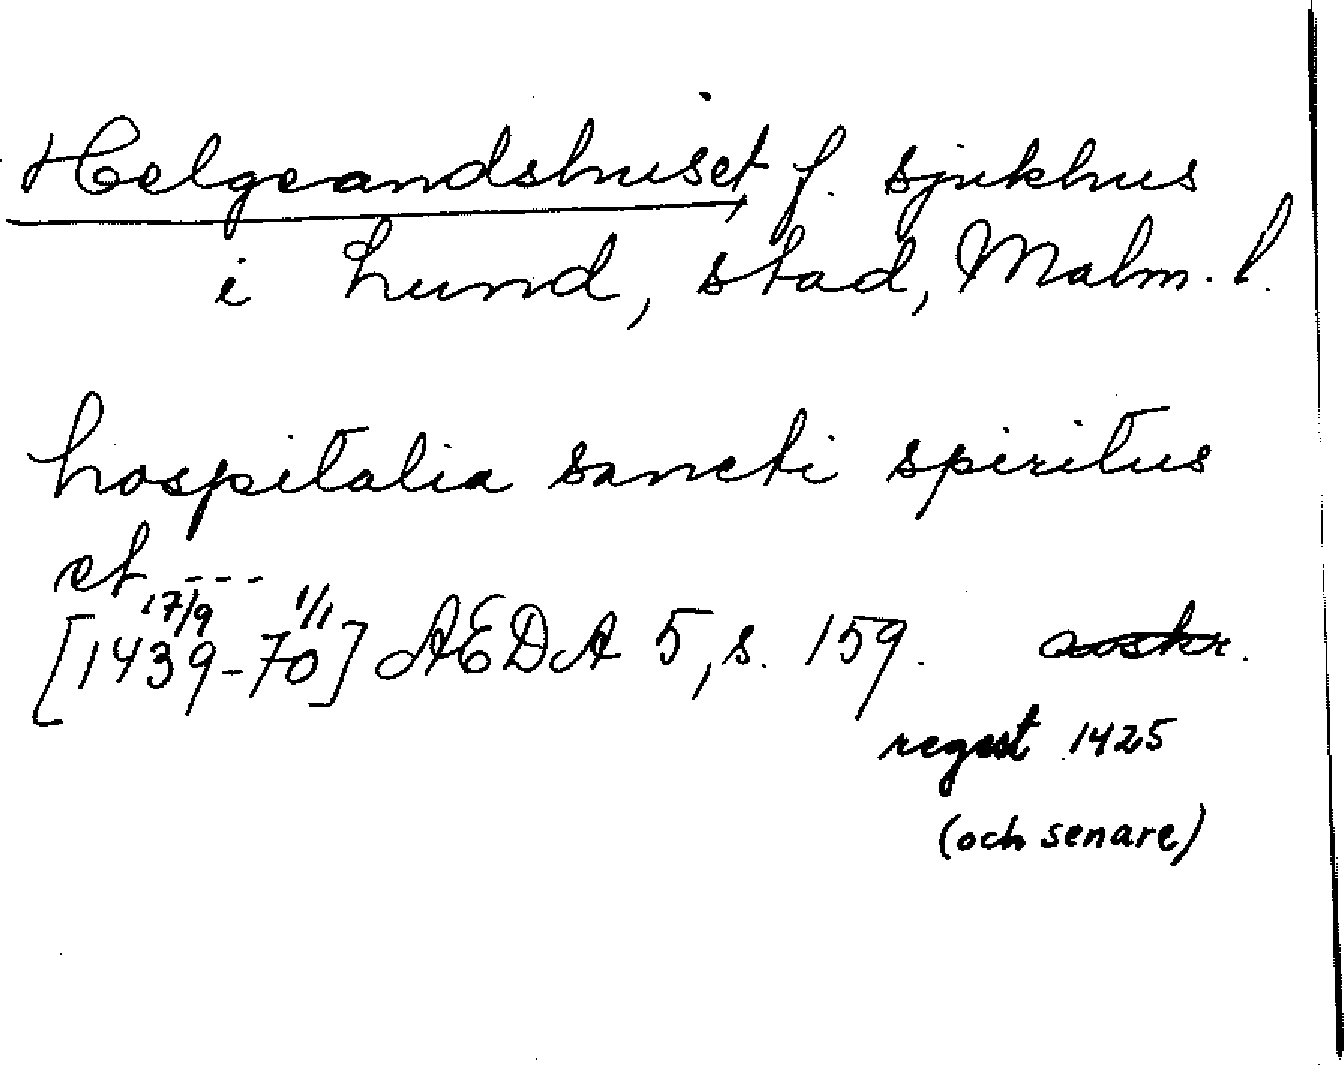 Helgeandshuset, f. sjukhus
i Lund, stad, Malm. l.
hospitalia sancti spiritus
et ---
[17/9 1439 - 1/1 70] AEDA 5, s. 159.
regest 1425
(och senare)